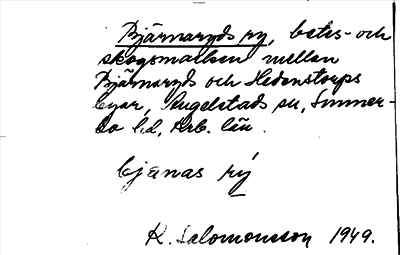 Bjärnaryds ry, betes- och
skogsmarken mellan
Bjärnaryds och Hedenstorps
byar, Angelstads sn, Sunner-
bo hd, Krb. län.
bjænas rý
K. Salomonsson 1949.